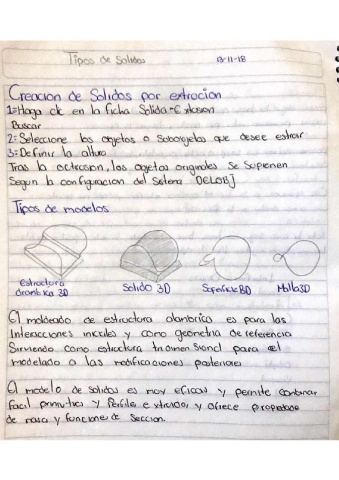 Tipos de Solidos 13-11-18
Creacion de Solidos por extrocion
1=Haga clic en la ficha Solida-Extosion
Buscar
2=Seleccione los objetos o Subobjetos que desee estroir
3=Definir la altura
Tras la octrosion, los ogetos originales se Suprenen
Segun la configuracion del Sistema DELOBJ
Tipos de modelos
estructura Solido 3D Superficie 3D Malla3D
3D
El moldeado de estructura alambrica es para las
Interacciones iniciales y como geometria de referencia
Sirviendo como estructura para el
modelado o las modificaciones posteriores
El modelo de solidos es muy eficas y permite combinar
facil primitivas y Perfiles extruidos y ofrece propiedades
de masa y funciones de Seccion.